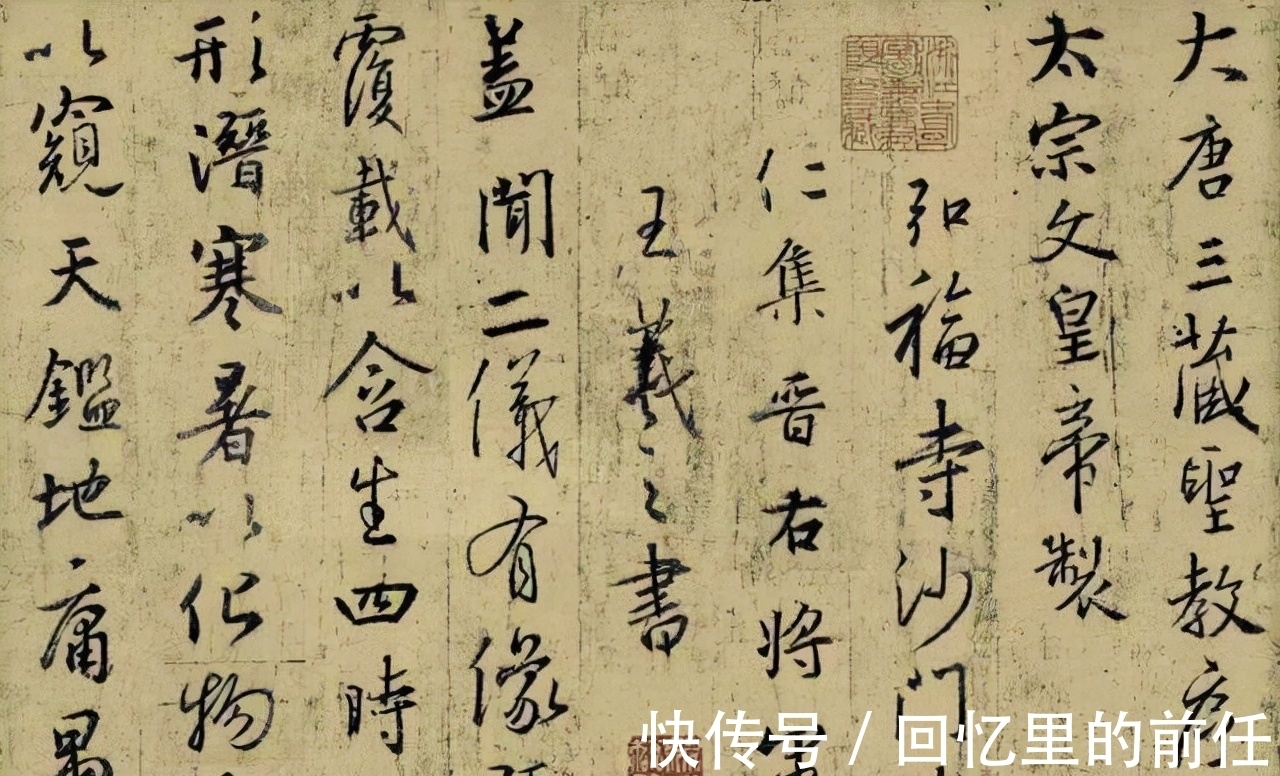 大唐三藏聖教序
太宗文皇帝製
弘福寺沙門
仁集晋右将軍
王羲之書
盖聞二儀有像
覆載以含生四時
形潛寒暑以化物
以窺天鑑地庸愚
快传号/回忆里的前任